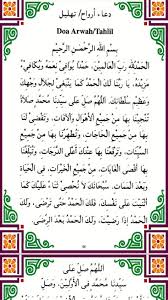 دعاء أرواح/ تهليل
Doa Arwah/Tahlil
بِسْمِ اللهِ الرَّحْمَنِ الرَّحِيْمِ
الْحَمْدُ ِللهِ رَبِّ الْعَالَمِيْنَ، حَمْدًا يُوَافِيْ نِعَمَهُ وَيُكَافِئُ
مَزِيْدَهُ، يَا رَبَّنَا لَكَ الْحَمْدُ كَمَا يَنْبَغِيْ لِجَلَالِ وَجْهِكَ
وَعَظِيْمِ سُلْطَانِكَ. اَللَّهُمَّ صَلِّ عَلَى سَيِّدِنَا مُحَمَّدٍ صَلَاةً
تُنْجِيْنَا بِهَا مِنْ جَمِيْعِ الْأَهْوَالِ وَالْآفَاتِ، وَتَقْضِيْ لَنَا
بِهَا مِنْ جَمِيْعِ الْحَاجَاتِ، وَتُطَهِّرُنَا بِهَا مِنْ جَمِيْعِ
السَّيِّئَاتِ، وَتَرْفَعُنَا بِهَا عِنْدَكَ أَعْلَى الدَّرَجَاتِ، وَتُبَلِّغُنَا
بِهَا أَقْصَى الْغَايَاتِ، مِنْ جَمِيْعِ الْخَيْرَاتِ فِي الْحَيَاةِ
وَبَعْدَ الْمَمَاتِ.
لَكَ الْحَمْدُ إِذَا رَضِيْتَ، وَلَكَ الْحَمْدُ بَعْدَ الرِّضَى.
اَللَّهُمَّ صَلِّ عَلَى
سَيِّدِنَا مُحَمَّدٍ فِي الْأَوَّلِيْنَ، وَصَلِّ